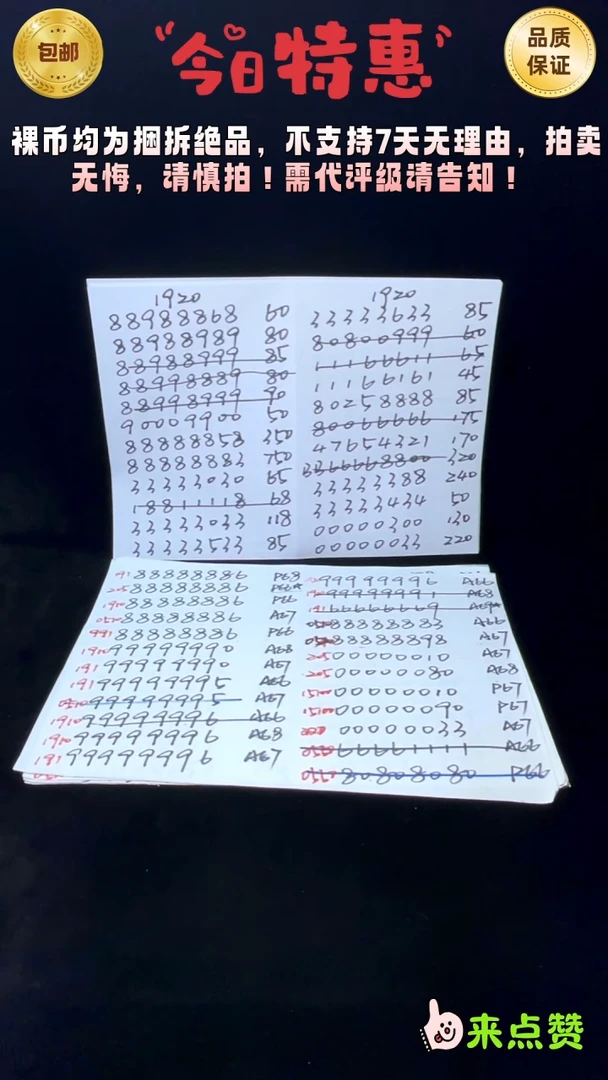 包邮
今日特惠
品质
保证
裸币均为捆拆绝品，不支持7天无理由，拍卖
无悔，请慎拍！需代评级请告知！
1920
88988868 60
88988989 80
88988999 85
88998889 80
88998999 90
90009900 50
88888858 350
88888883 750
33333030 65
18811118 68
33333033 118
33333533 85
1920
33333633 85
80800999 60
11166611 65
11166161 45
80258888 85
80066666 175
47654321 170
8800 320
33333388 240
33333434 50
00000300 130
00000033 220
191 88888886 P68
205 88888886
1910 88888886 P66
0510 88888886 A67
991 88888886 P66
1910 99999990 A68
191 99999990 A67
191 99999995 A66
99999995 A67
1910 99999996 A66
1910 99999996 A68
191 99999996 A67
99999996 A66
99999991 A68
191 66666669
88888883 A66
88888898 A67
205 00000010 A67
205 00000080 A68
1510 00000010 P67
1510 00000090 P67
00000033 A67
66661111 A66
80808080 P66
来点赞